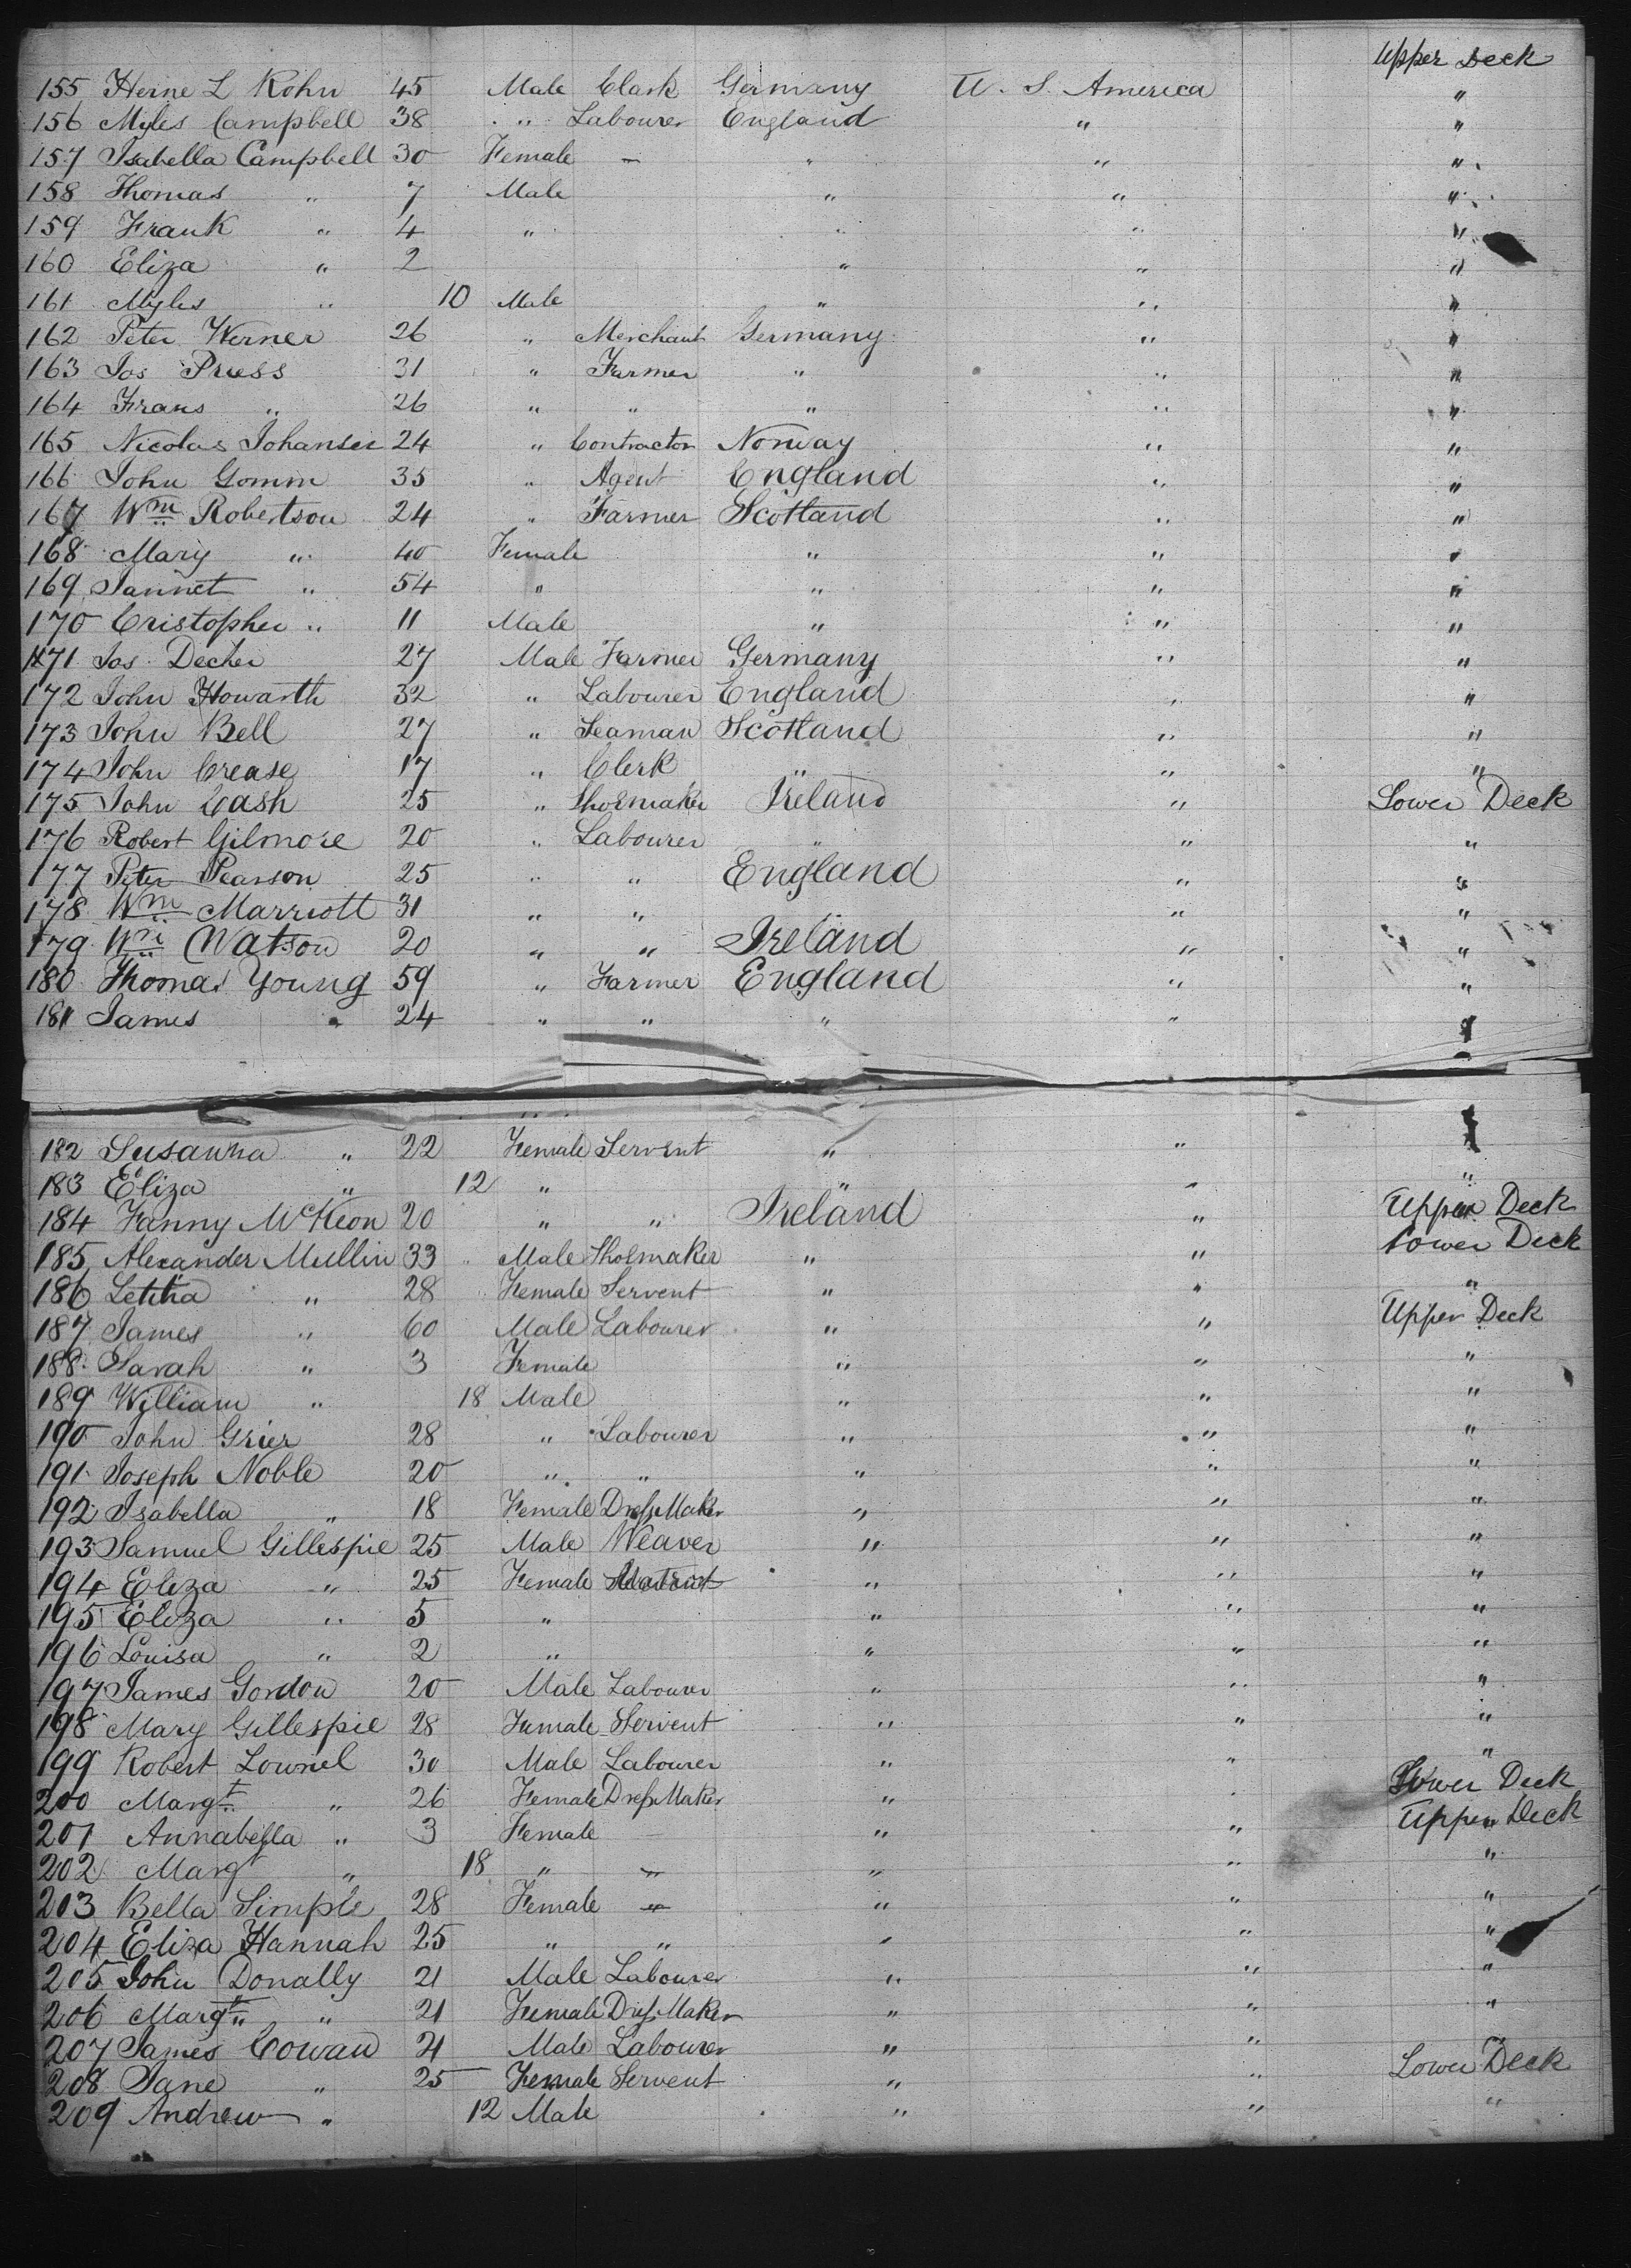 Upper Deck
155 Heine L Kohn 45 Male Clark Germany U. S. America "
156 Myles Campbell 38 " Labourer England " "
157 Isabella Campbell 30 Female – " " "
158 Thomas " 7 Male " " "
159 Frank " 4 " " " "
160 Eliza " 2 " " "
161 Myles " 10 Male " " "
162 Peter Werner 26 " Merchant Germany " "
163 Jos Pruess 31 " Farmer " " "
164 Frans " 26 " " " " "
165 Nicolas Johansen 24 " Contractor Norway " "
166 John Gomm 35 " Agent England " "
167 Wm Robertson 24 " Farmer Scotland " "
168 Mary " 40 Female " " "
169 Jannet " 54 " " " "
170 Cristopher " 11 Male " " "
171 Jos Decker 27 Male Farmer Germany " "
172 John Howarth 32 " Labourer England " "
173 John Bell 27 " Seaman Scotland " "
174 John Crease 17 " Clerk " " "
175 John Cash 25 " Shoemaker Ireland " Lower Deck
176 Robert Gilmore 20 " Labourer " " "
177 Peter Pearson 25 " " England " "
178 Wm Marriott 31 " " " "
179 Wm Watson 20 " " Ireland " "
180 Thomas Young 59 " Farmer England " "
181 James " 24 " " " " "
182 Susanna " 22 Female Servent " " "
183 Eliza " 12 " " " "
184 Fanny McKeon 20 " " Ireland " Upper Deck
185 Alexander Mullin 33 " Male Shoemaker " " Lower Deck
186 Letitia " 28 Female Servent " " "
187 James " 60 Male Labourer " " Upper Deck
188 Sarah " 3 Female " " "
189 William " 18 Male " " "
190 John Grier 28 " Labourer " " "
191 Joseph Noble 20 " " " " "
192 Isabella " 18 Female Dress Maker " " "
193 Samuel Gillespie 25 Male Weaver " " "
194 Eliza " 25 Female " " "
195 Eliza " 5 " " " "
196 Louisa " 2 " " " "
197 James Gordon 20 Male Labourer " " "
198 Mary Gillespie 28 Female Servent " " "
199 Robert Lownel 30 Male Labourer " " "
200 Margt " 26 Female Dress Maker " " Lower Deck
201 Annabella " 3 Female " " Upper Deck
202 Margt " 18 " " " " "
203 Bella Simple 28 Female " " " "
204 Eliza Hannah 25 " " " " "
205 John Donally 21 Male Labourer " " "
206 Margt " 21 Female Dress Maker " " "
207 James Cowan 21 Male Labourer " " "
208 Jane " 25 Female Servent " " Lower Deck
209 Andrew " 12 Male " " "